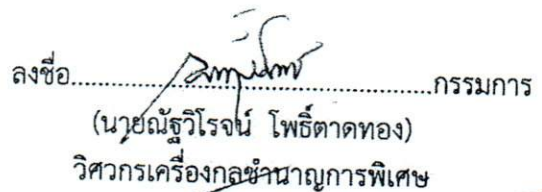 ลงชื่อ................................................กรรมการ
(นายณัฐวิโรจน์ โพธิ์ตาดทอง)
วิศวกรเครื่องกลชำนาญการพิเศษ